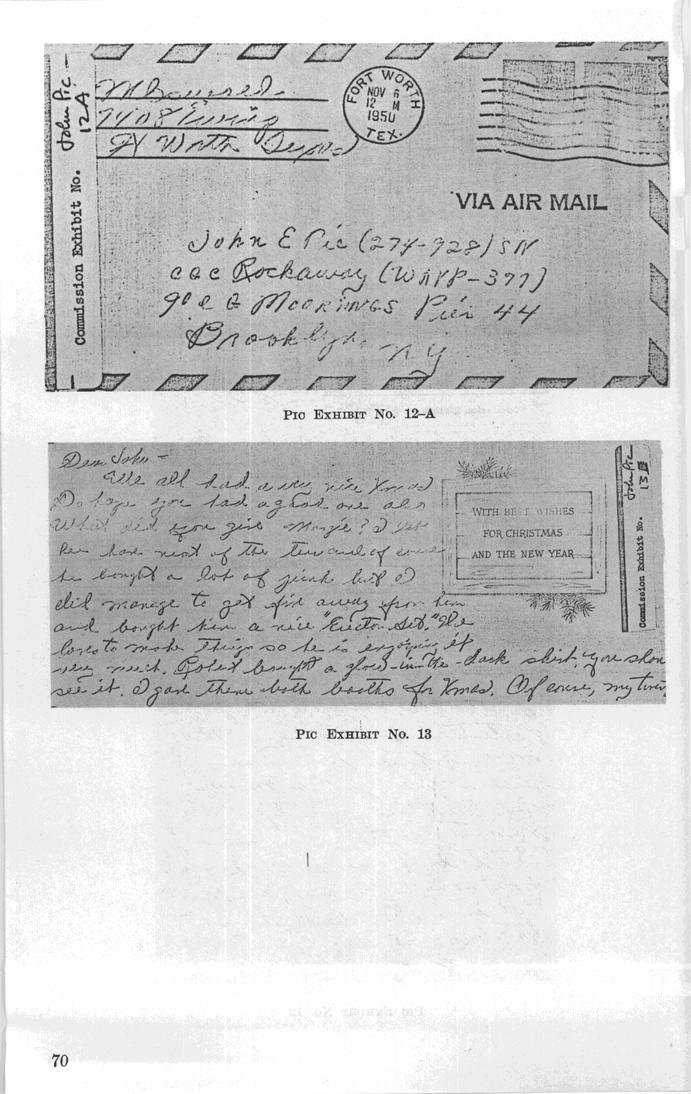 Commission Exhibit No.
John Pic
12A
7408 Ewing
Ft Worth
FORT WORTH
NOV 6
12 M
1950
TEX.
VIA AIR MAIL
John E Pic (274-928) SN
CGC Rockaway (WAVP-377)
MOORINGS Pier 44
Brooklyn, NY
PIC EXHIBIT NO. 12-A
Dear John -
all had a very nice Xmas
you had a good one also
What did you give Margie? I let
Lee have most of the
he bought a lot of junk but I
did manage to get five away from him
and bought him a nice "Erector Set." He
loves to make things so he is enjoying it
very much. Robert bought a glow-in-the-dark shirt. you shou
see it. I gave them both boots for Xmas. Of course, my
WITH BEST WISHES
FOR CHRISTMAS
AND THE NEW YEAR
Commission Exhibit No.
John Pic
13
PIC EXHIBIT NO. 13
70